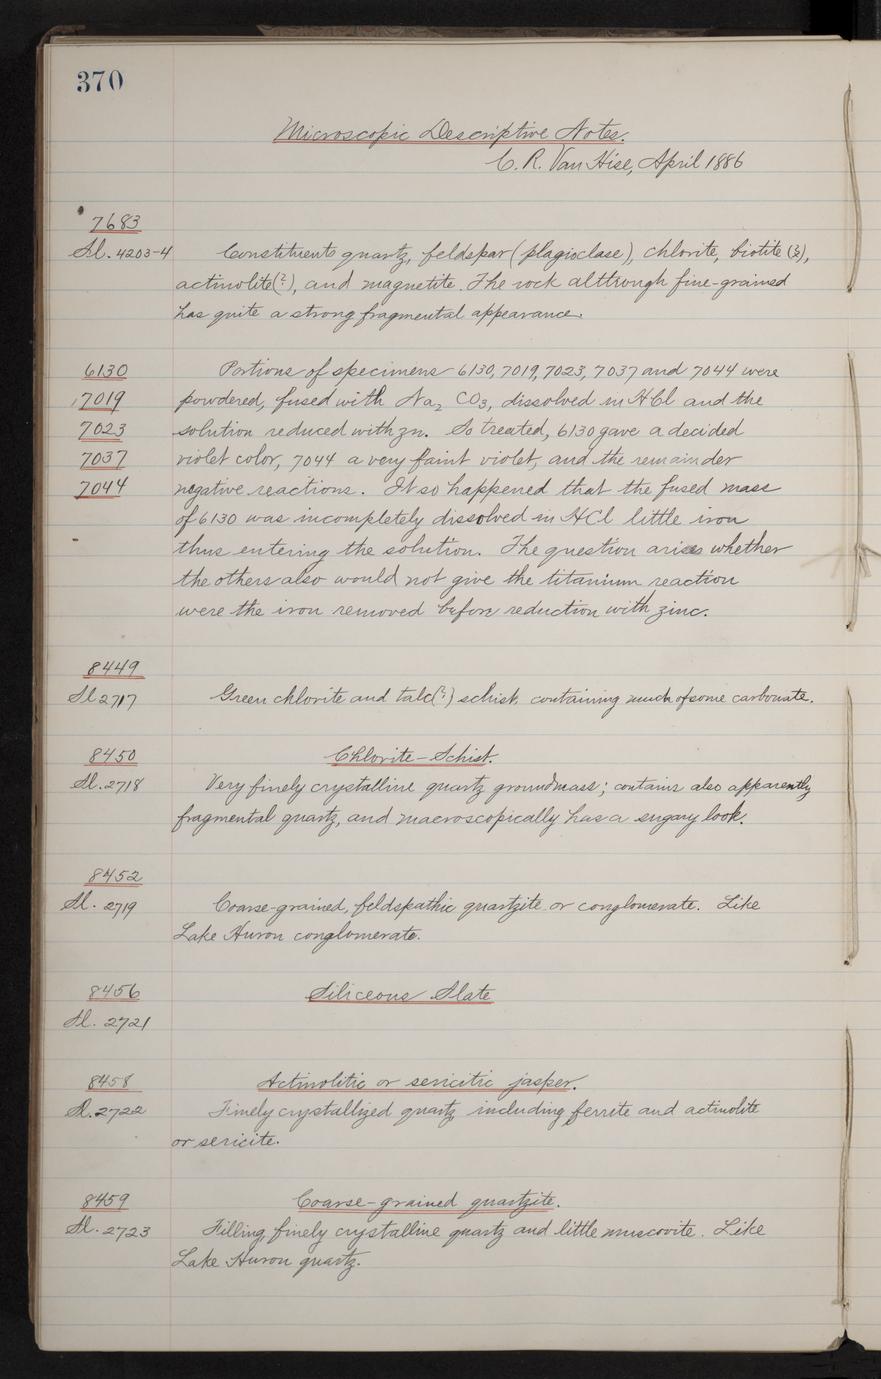 370
Microscopic Descriptive Notes.
C. R. Van Hise, April 1886
7683
Sl. 4203-4 Constituents quartz, feldspar (plagioclase), chlorite, biotite (?),
actinolite (?), and magnetite. The rock although fine-grained
has quite a strong fragmental appearance.
6130 Portions of specimens 6130, 7019, 7023, 7037 and 7044 were
7019 powdered, fused with Na2 CO3, dissolved in HCl and the
7023 solution reduced with zn. So treated, 6130 gave a decided
7037 violet color, 7044 a very faint violet, and the remainder
7044 negative reactions. It so happened that the fused mass
of 6130 was incompletely dissolved in HCl little iron
thus entering the solution. The question arises whether
the others also would not give the titanium reaction
were the iron removed before reduction with zinc.
8449
Sl 2717 Green chlorite and talc(?) schist containing much of some carbonate.
8450 Chlorite-Schist.
Sl. 2718 Very finely crystalline quartz groundmass; contains also apparently
fragmental quartz, and macroscopically has a sugary look.
8452
Sl. 2719 Coarse-grained, feldspathic quartzite or conglomerate. Like
Lake Huron conglomerate.
8456 Siliceous Slate
Sl. 2721
8458 Actinolitic or sericitic jasper.
Sl. 2722 Finely crystallized quartz including ferrite and actinolite
or sericite.
8459 Coarse-grained quartzite.
Sl. 2723 Filling, finely crystalline quartz and little muscovite. Like
Lake Huron quartz.